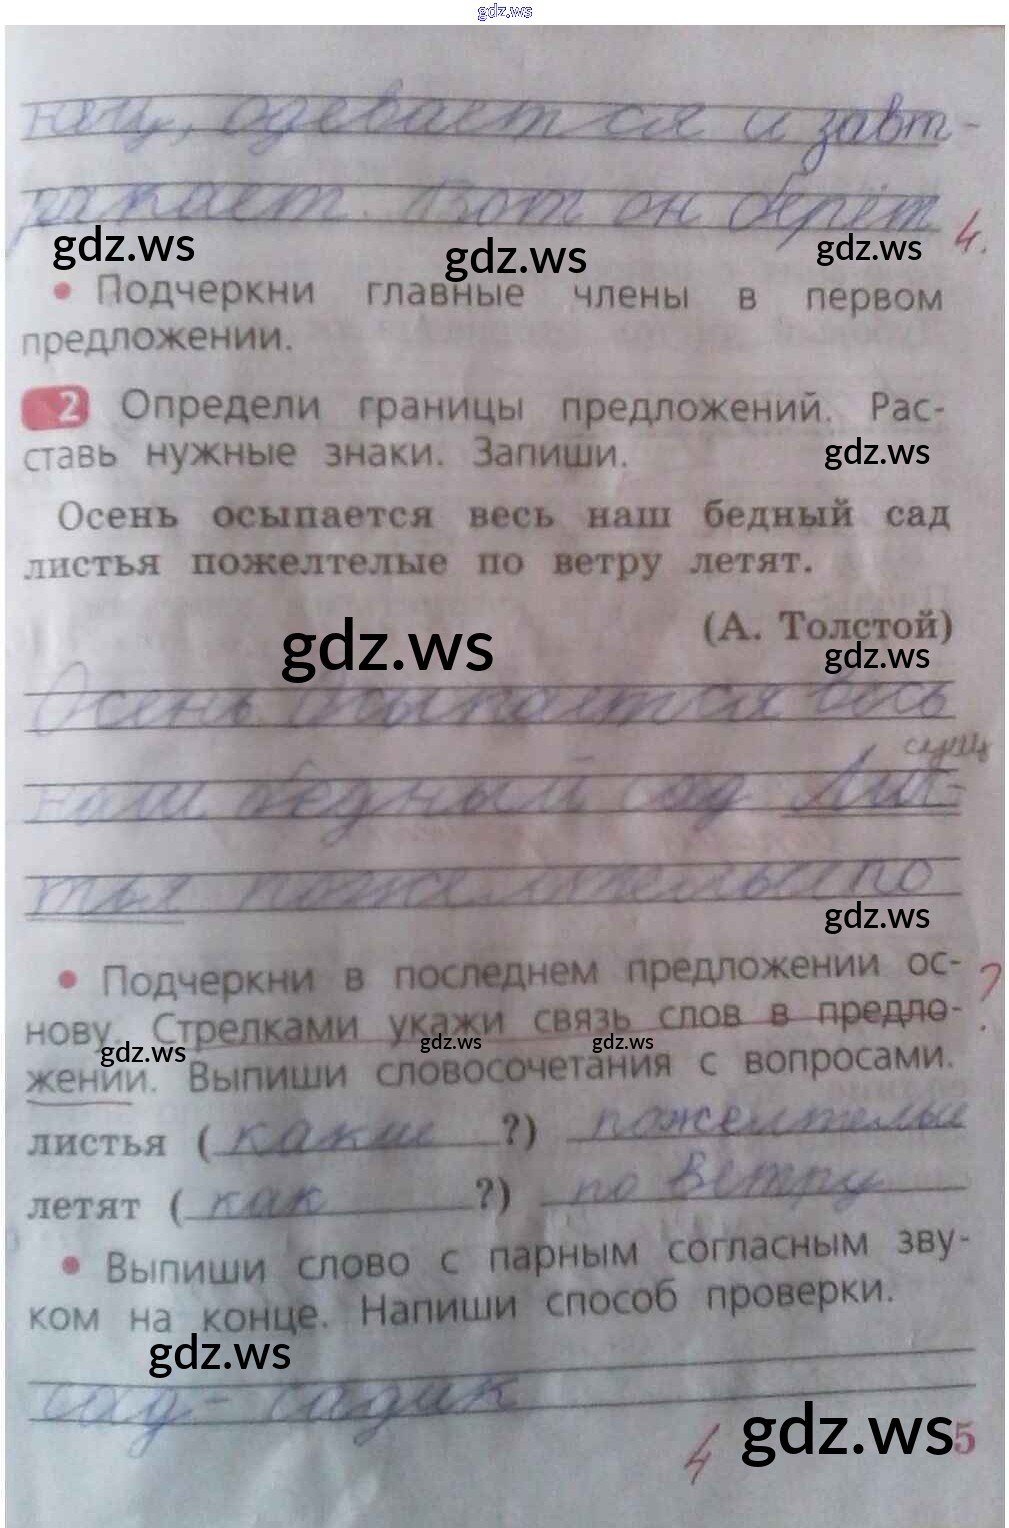 gdz.ws
нац, одевается и завт-
ракает. Вот он берёт
gdz.ws gdz.ws gdz.ws 4.
• Подчеркни главные члены в первом
предложении.
2 Определи границы предложений. Рас-
ставь нужные знаки. Запиши.
gdz.ws
Осень осыпается весь наш бедный сад
листья пожелтелые по ветру летят.
(А. Толстой)
gdz.ws gdz.ws
Осень. Осыпается весь
сущ
наш бедный сад Лис-
тья пожелтелые по
gdz.ws
• Подчеркни в последнем предложении ос- ?
нову. Стрелками укажи связь слов в предло-
gdz.ws gdz.ws gdz.ws
жении. Выпиши словосочетания с вопросами.
листья (какие ?) пожелтелые
летят (как ?) по ветру
• Выпиши слово с парным согласным зву-
ком на конце. Напиши способ проверки.
gdz.ws
сад - садик
4 gdz.ws 5